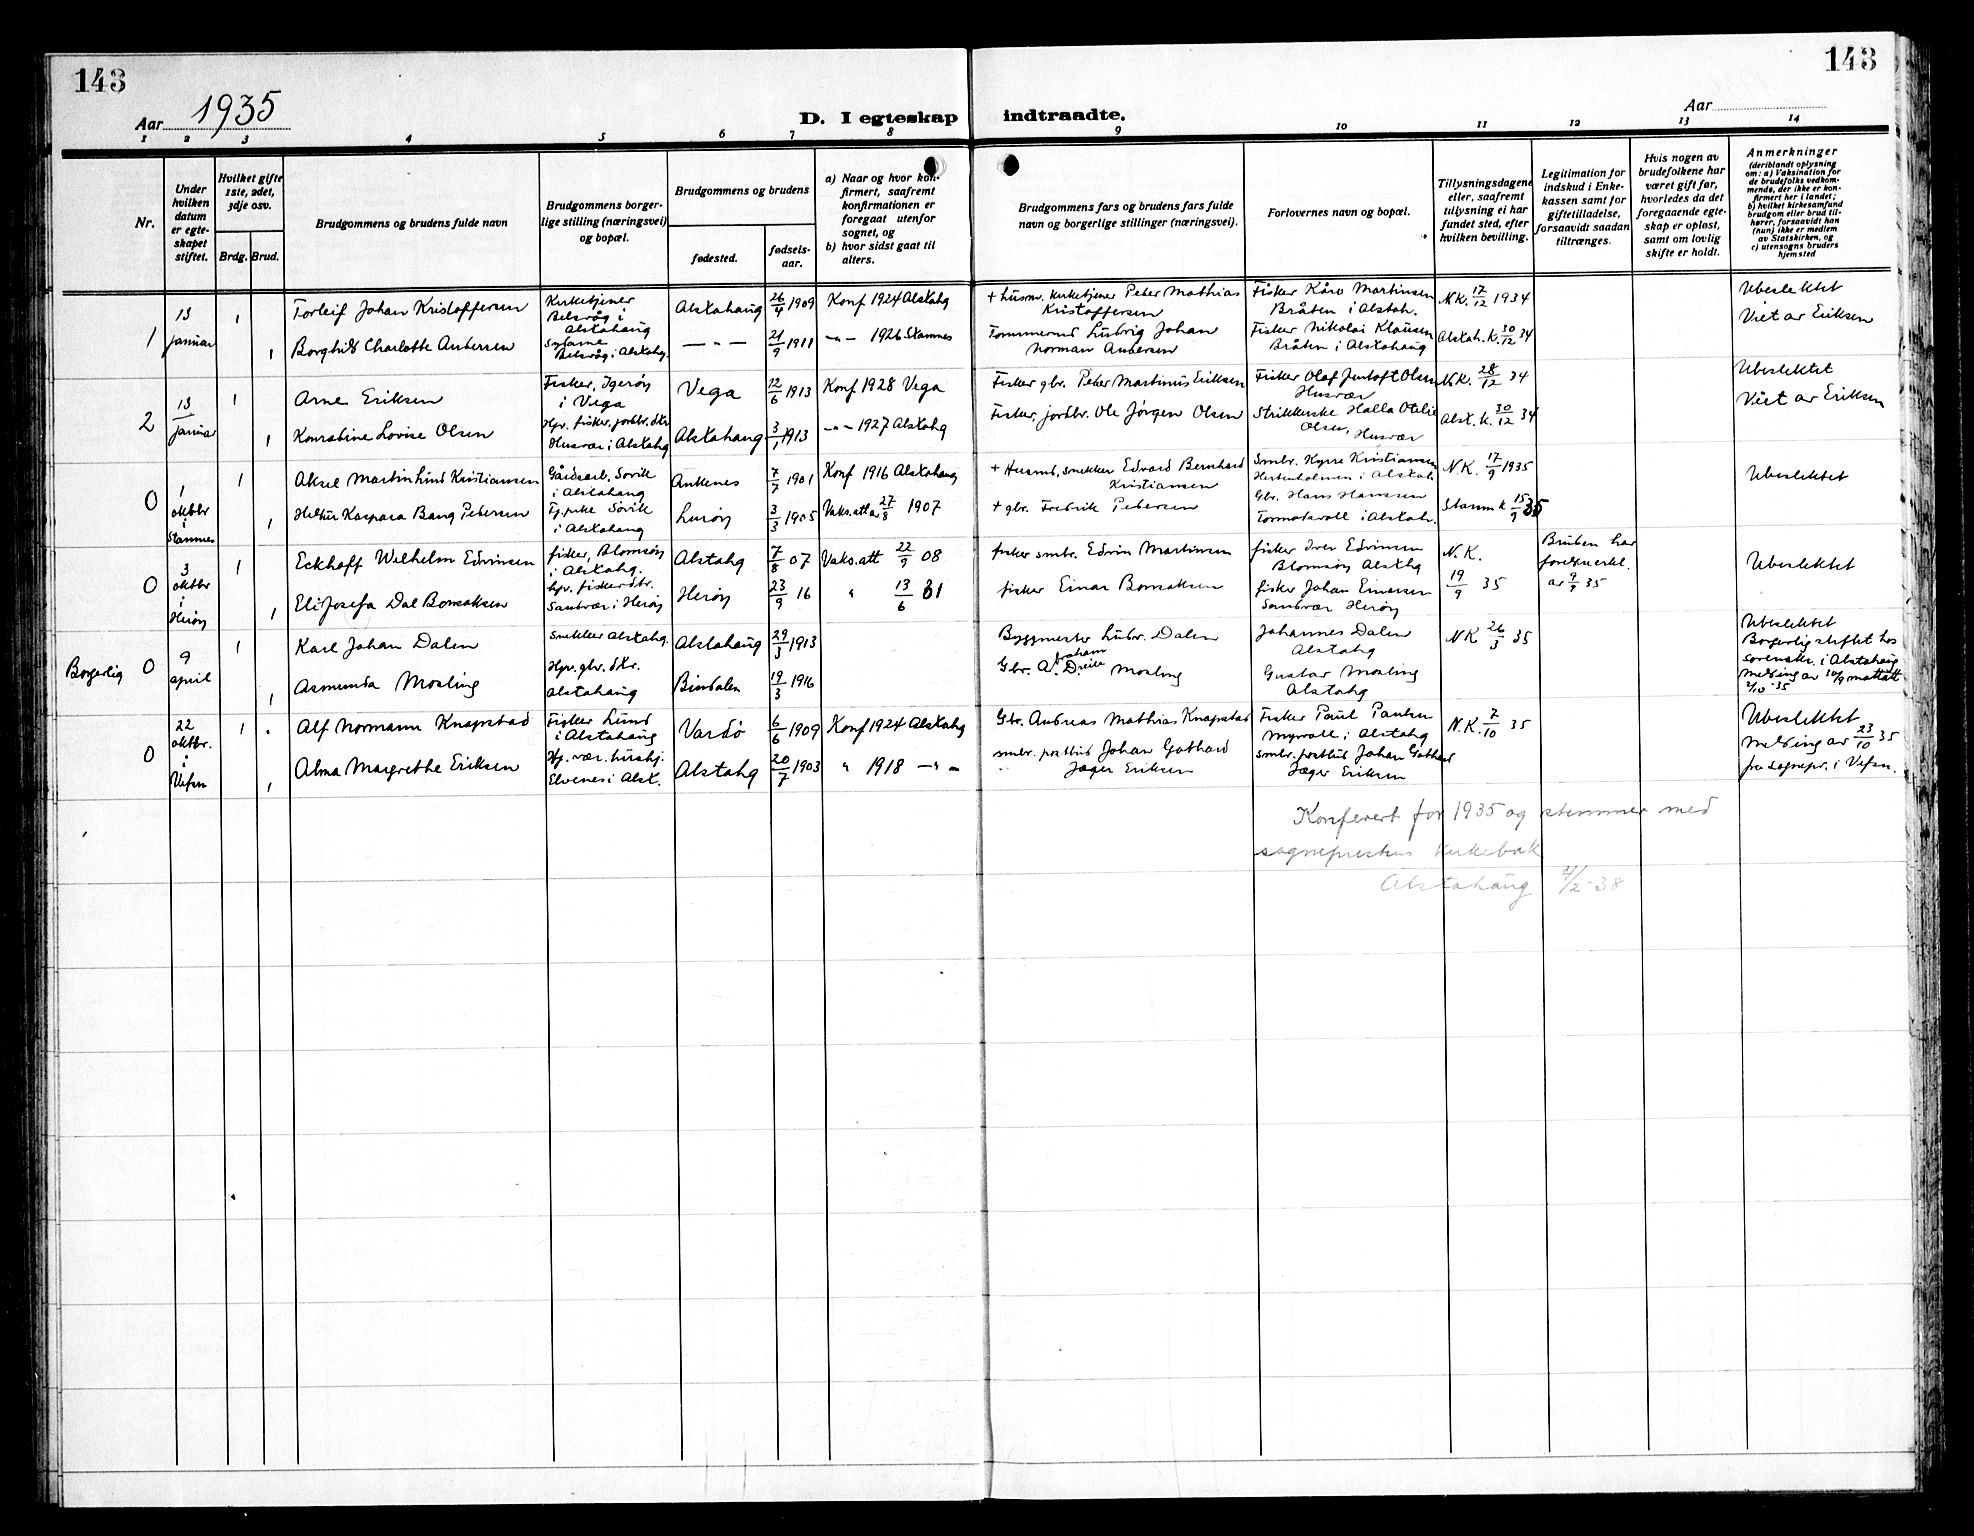 143
143
Aar 1935
D. I egteskap indtraadte.
Aar
1 2 3 4 5 6 7 8 9 10 11 12 13 14
Nr.
Under hvilken datum er egteskapet stiftet.
Hvilket gifte 1ste, 2det, 3dje osv.
Brdg. Brud.
Brudgommens og brudens fulde navn
Brudgommens borgerlige stilling (næringsvei) og bopæl.
Brudgommens og brudens
fødested.
fødselsaar.
a) Naar og hvor konfirmert, saafremt konfirmationen er foregaat utenfor sognet, og
b) hvor sidst gaat til alters.
Brudgommens fars og brudens fars fulde navn og borgerlige stillinger (næringsvei).
Forlovernes navn og bopæl.
Tillysningsdagene eller, saafremt tillysning ei har fundet sted, efter hvilken bevilling.
Legitimation for indskud i Enkekassen samt for giftetilladelse, forsaavidt saadan tiltrænges.
Hvis nogen av brudefolkene har været gift før, hvorledes da det foregaaende egteskap er opløst, samt om lovlig skifte er holdt.
Anmerkninger
(deriblandt oplysning om: a) Vaksination for de brudefolks vedkommende, der ikke er konfirmert her i landet; b) hvilket kirkesamfund brudgom eller brud tilhører, forsaavidt han (hun) ikke er medlem av Statskirken, og c) utensogns bruders hjemsted
1 13 januar
1 Torleif Johan Kristoffersen Kirketjener Belsvåg i Alstahaug Alstahaug 26/4 1909 Konf 1924 Alstahg + husm. kirketjener Peder Mathias Kristoffersen Fisker Kåre Martinsen Bråten i Alstah. N.K. 17/12 1934 Ubeslektet
Viet av Eriksen
1 Borghild Charlotte Andersen Syerne Belsvåg i Alstahg. — " — 21/9 1911 — " — 1926 Stamnes Tømmermd Ludvig Johan Norman Andersen Fisker Nikolai Klausen Bråten i Alstahaug Alstah. k. 30/12 34
2 13 januar
1 Arne Eriksen Fisker, Igerøy i Vega Vega 12/6 1913 Konf 1928 Vega Fisker gbr. Peder Martinus Eriksen Fisker Olaf Jentoft Olsen Husvær N.K. 28/12 34 Ubeslektet
Viet av Eriksen
1 Konradine Lovise Olsen Hpr. fisker, jordbr. dtr Husvær i Alstahg Alstahaug 3/1 1913 — " — 1927 Alstahg Fisker, jordbr. Ole Jørgen Olsen Strikkerske Halla Otelie Olsen, Husvær Alst. k. 30/12 34
0 1 oktbr i Stamnes
1 Aksel Martin Lund Kristiansen Gårdsarb. Søvik i Alstahaug Ankenes 7/7 1901 Konf 1916 Alstahaug + Husmd., snekker Edvard Bernhard Kristiansen Smbr. Kyrre Kristiansen Hestenholmen i Alstah. N.K. 17/9 1935 Ubeslektet
1 Kaspara Bang Pedersen Tj.pike Søvik i Alstahaug Lurøy 3/3 1905 Vaks.att av 27/8 1907 + gbr. Fredrik Pedersen Gbr. Hans Hanssen i Alstah. Stamn k 15/9 35
0 3 oktbr i Herøy
1 Eckhoff Wilhelm Edvinsen fisker, Blomsøy i Alstahg. Alstahg 7/8 07 Vaks.att 22/9 08 fisker smbr. Edvin Martinsen fisker Iver Edvinsen Blomsøy Alstahg N.K. 19/9 35 Bruden har
av 9/9 35 Ubeslektet
1 Eli Josefa Dal Bonsaksen hpr. fiskerdtr. Sandvær i Herøy Herøy 23/9 16 " 13/6 31 fisker Einar Bonsaksen fisker Johan Einarsen Sandvær Herøy
Borgerlig 0 9 april
1 Karl Johan Dalen Snekker Alstahg. Alstahaug 29/3 1913 Byggmester Ludv. Dalen Johannes Dalen Alstahg N.K. 26/3 35 Ubeslektet
Borgerlig stiftet hos sorenskr. i Alstahaug
Melding av 30/9 mottatt 2/10-35
1 Asmunda Mosling Hpr. gbr. dtr. Alstahaug Bindalen 19/3 1916 Gbr. Abraham Mosling Gustav Mosling Alstahg
0 22 oktbr. i Vefsn
1 Alf Normann Knapstad Fisker Lund i Alstahaug Vardø 6/6 1909 Konf 1924 Alstahg Gbr. Andreas Mathias Knapstad Fisker Paul Paulsen Myrvoll i Alstahg N.K. 7/10 35 Ubeslektet
Melding av 23/10 35
fra sognepr. i Vefsn.
1 Alma Margrethe Eriksen Hj. vær. Elvenes i Alst. Alstahg 20/7 1903 " 1918 — " — smbr. postbud Johan Gothard Jæger Eriksen smbr. postbud Johan Gothard Jæger Eriksen
Konferert for 1935 og stemmer med
sogneprestens kirkebok
Alstahaug 4/2-38